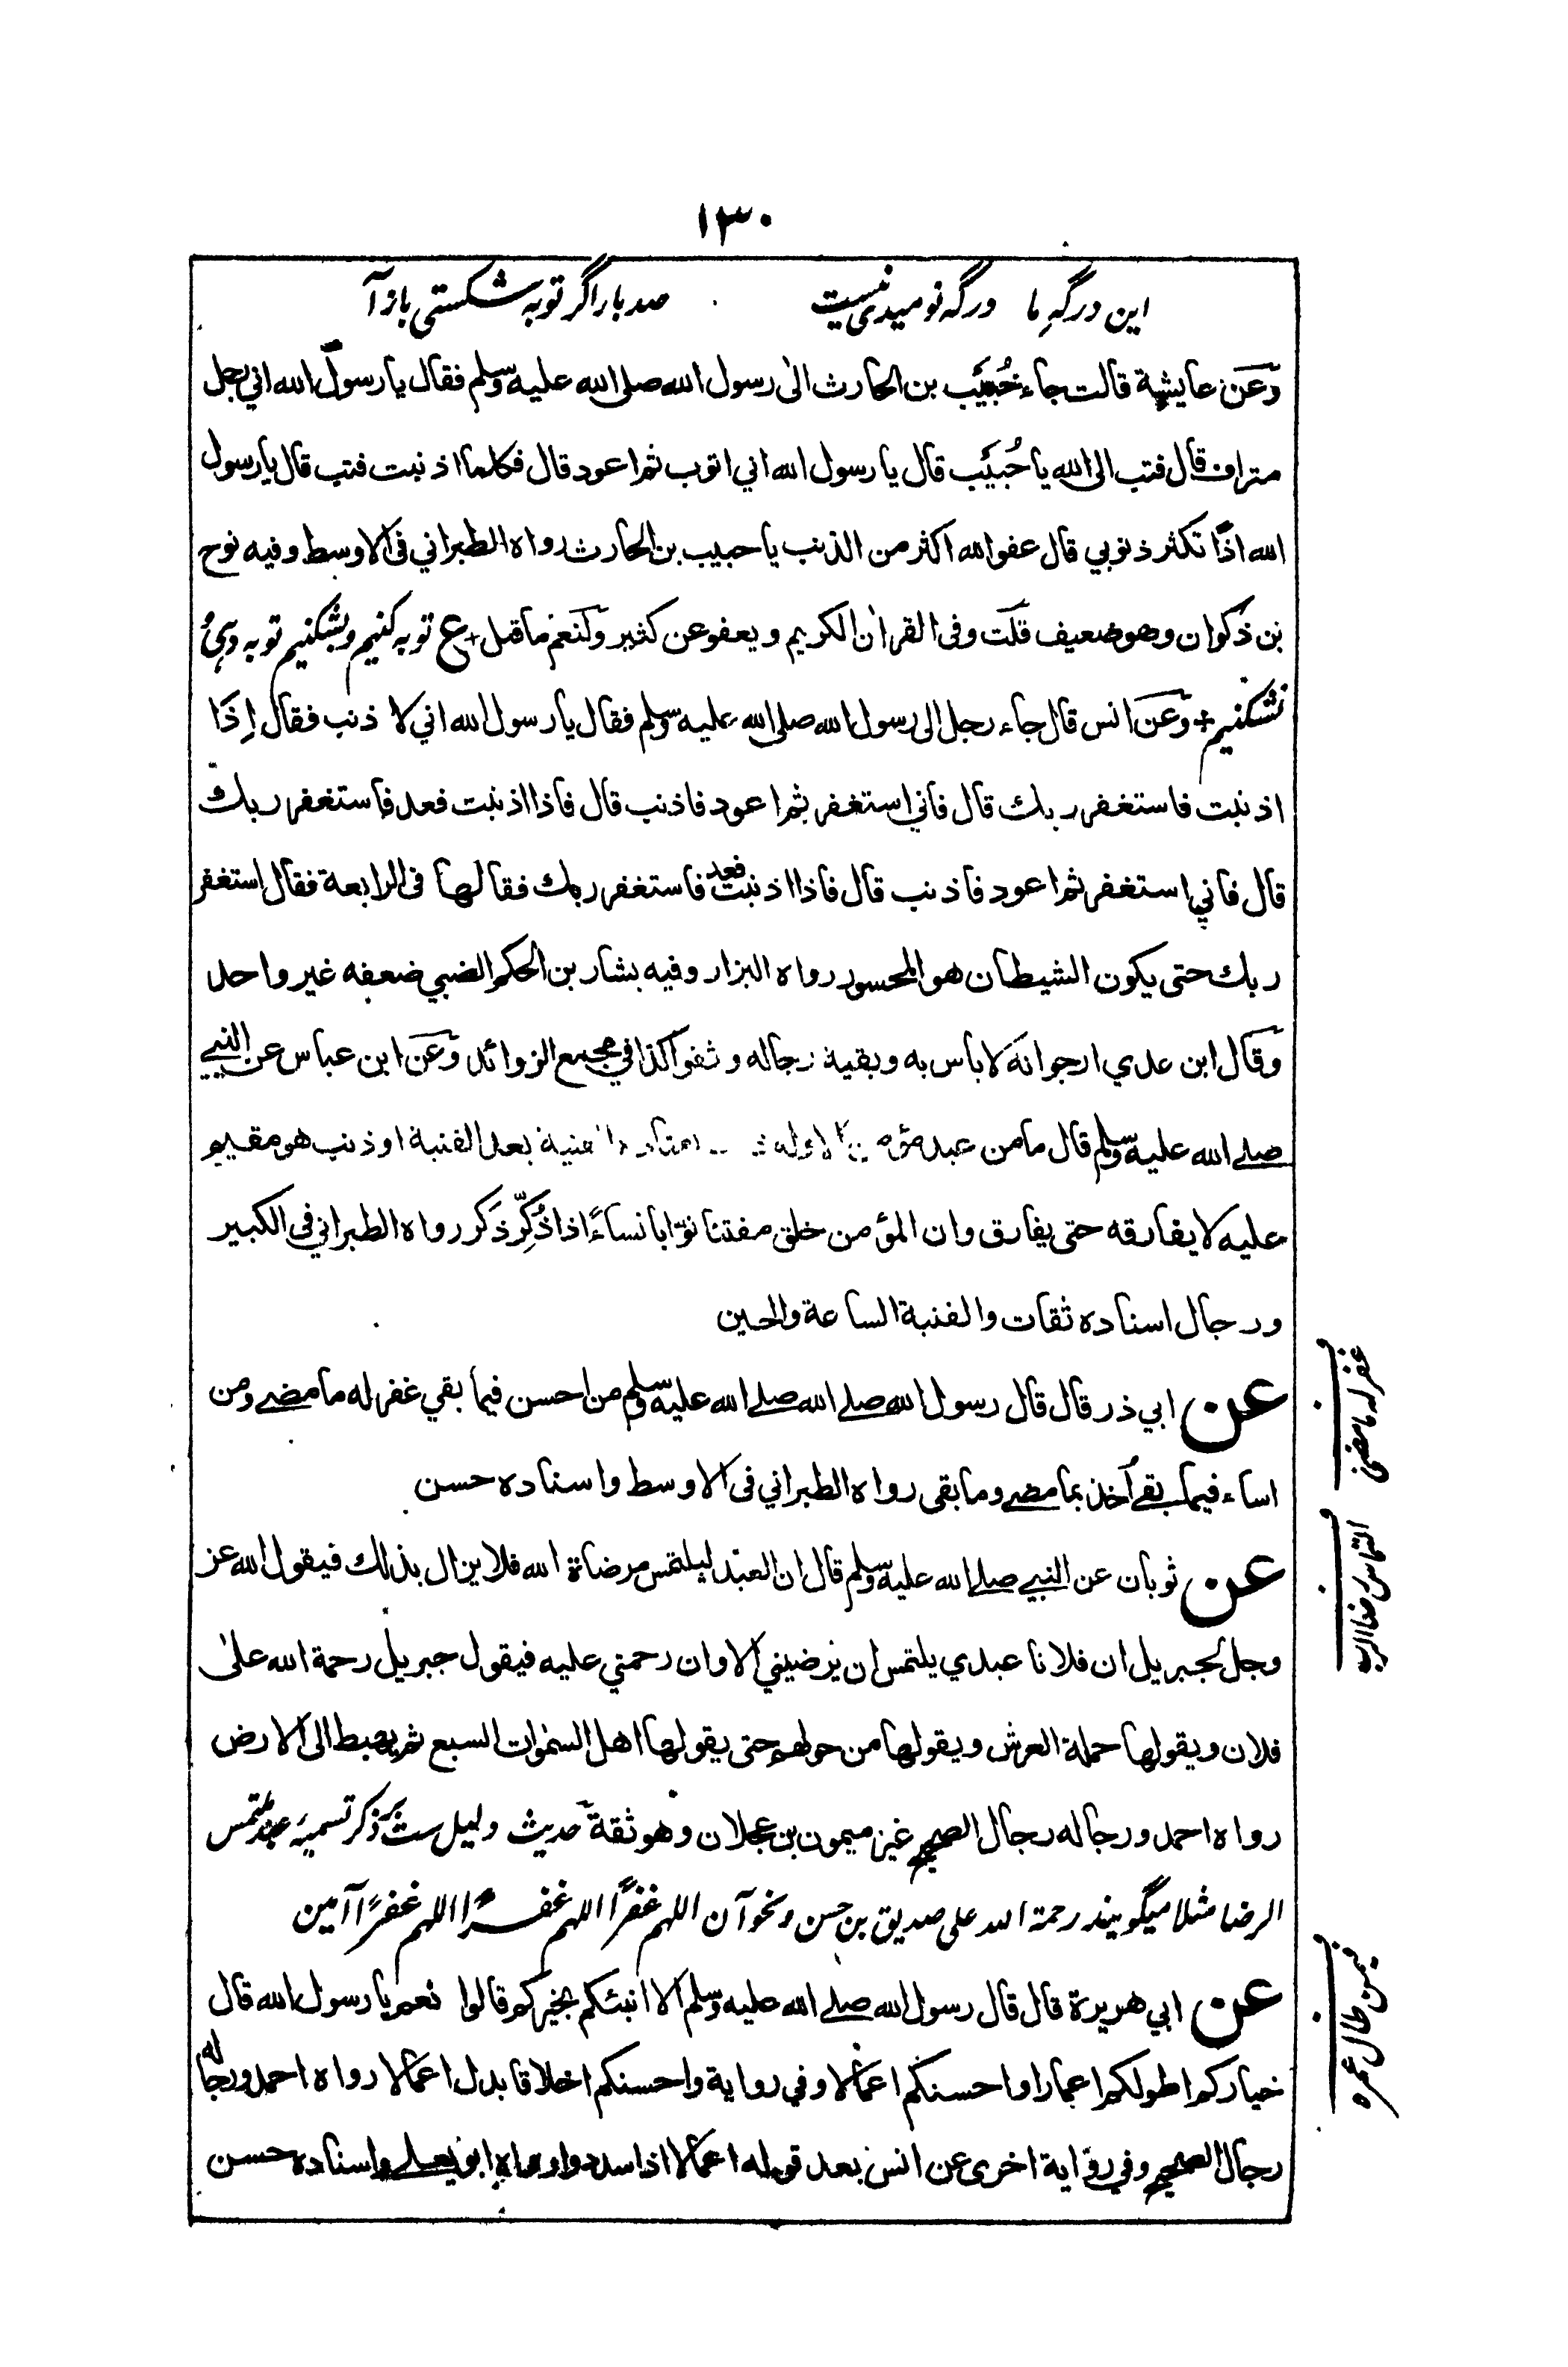 ۱۳۰
این درگهِ ما درگه نومیدی نیست صد بار اگر توبه شکستی باز آ
وَعَن عايشة قالت جاء حُبَيِّب بن الحارث الى رسول الله صلى الله عليه وسلم فقال يا رسول الله اني رجل
متراف قال فتب الى الله يا حُبَيِّب قال يا رسول الله اني اتوب ثم اعود قال فكلما اذنبت فتب قال يا رسول
الله اذًا تكثر ذنوبي قال عفو الله اكثر من الذنب يا حبيب بن الحارث رواه الطبراني فى الاوسط وفيه نوح
بن ذكوان وهو ضعيف قلت وفى القران الكريم ويعفو عن كثير ولنعم ما قيل + ع توبه كنيم وبشكنيم توبه
نشكنيم + وَعَن انس قال جاء رجل الى رسول الله صلى الله عليه وسلم فقال يا رسول الله اني لا ذنب فقال إذَا
اذنبت فاستغفر ربك قال فاني استغفر ثم اعود فاذنب قال فاذا اذنبت فعد فاستغفر ربك
قال فاني استغفر ثم اعود فاذنب قال فاذا اذنبت فعد فاستغفر ربك فقالها فى الرابعة فقال استغفر
ربك حتى يكون الشيطان هو المحسور رواه البزار وفيه بشار بن الحكم الضبي ضعفه غير واحد
وَقال ابن عدي ارجو انه لا باس به وبقية رجاله وثقوا كذا في مجمع الزوائد وَعَن ابن عباس عن النبي
صلے الله عليه وسلم قال ما من عبد مؤمن الا وله بعد الفنية او ذنب هو مقيم
عليه لا يفارقه حتى يفارق وان المؤمن خلق مفتنا توّابا نساءً اذا ذُكِّر ذَكر رواه الطبراني فى الكبير
ورجال اسناده ثقات والفنية الساعة والحين
عن ابي ذر قال قال رسول الله صلے الله صلے الله عليه وسلم من احسن فيما بقي غفر له ما مضے ومن
اساء فيما بقے اُخذ بما مضے وما بقى رواه الطبراني فى الاوسط واسناده حسن
عن ثوبان عن النبي صلے الله عليه وسلم قال ان العبد ليلتمس مرضاة الله فلا يزال بذلك فيقول الله عز
وجل لجبريل ان فلانا عبدي يلتمس ان يرضيني الا وان رحمتي عليه فيقول جبريل رحمة الله على
فلان ويقولها حملة العرش ويقولها من حولهم حتى يقولها اهل السموات السبع ثم يهبط الى الارض
رواه احمد ورجاله رجال الصحيح غير ميمون بن عجلان وهو ثقة حديث دليل ست بر ذكر تسميۂ عبد ملتمس
الرضا مثلا ميگويند رحمة الله على صديق بن حسن ونحو آن اللهم غفرًا اللهم غفرًا اللهم غفرًا آمين
عن ابي هريرة قال قال رسول الله صلے الله عليه وسلم الا انبئكم بخيركم قالوا نعم يا رسول الله قال
خياركم اطولكم اعمارا واحسنكم اعمالا وفي رواية واحسنكم اخلاقا بدل اعمالا رواه احمد ورجاله
رجال الصحيح وفي رواية اخرى عن انس بعد قوله اعمالا اذا سددوا رواه ابو يعلے واسناده حسن
غفر له ما مضى
التماس رضا الرب
فيمن طال عمره